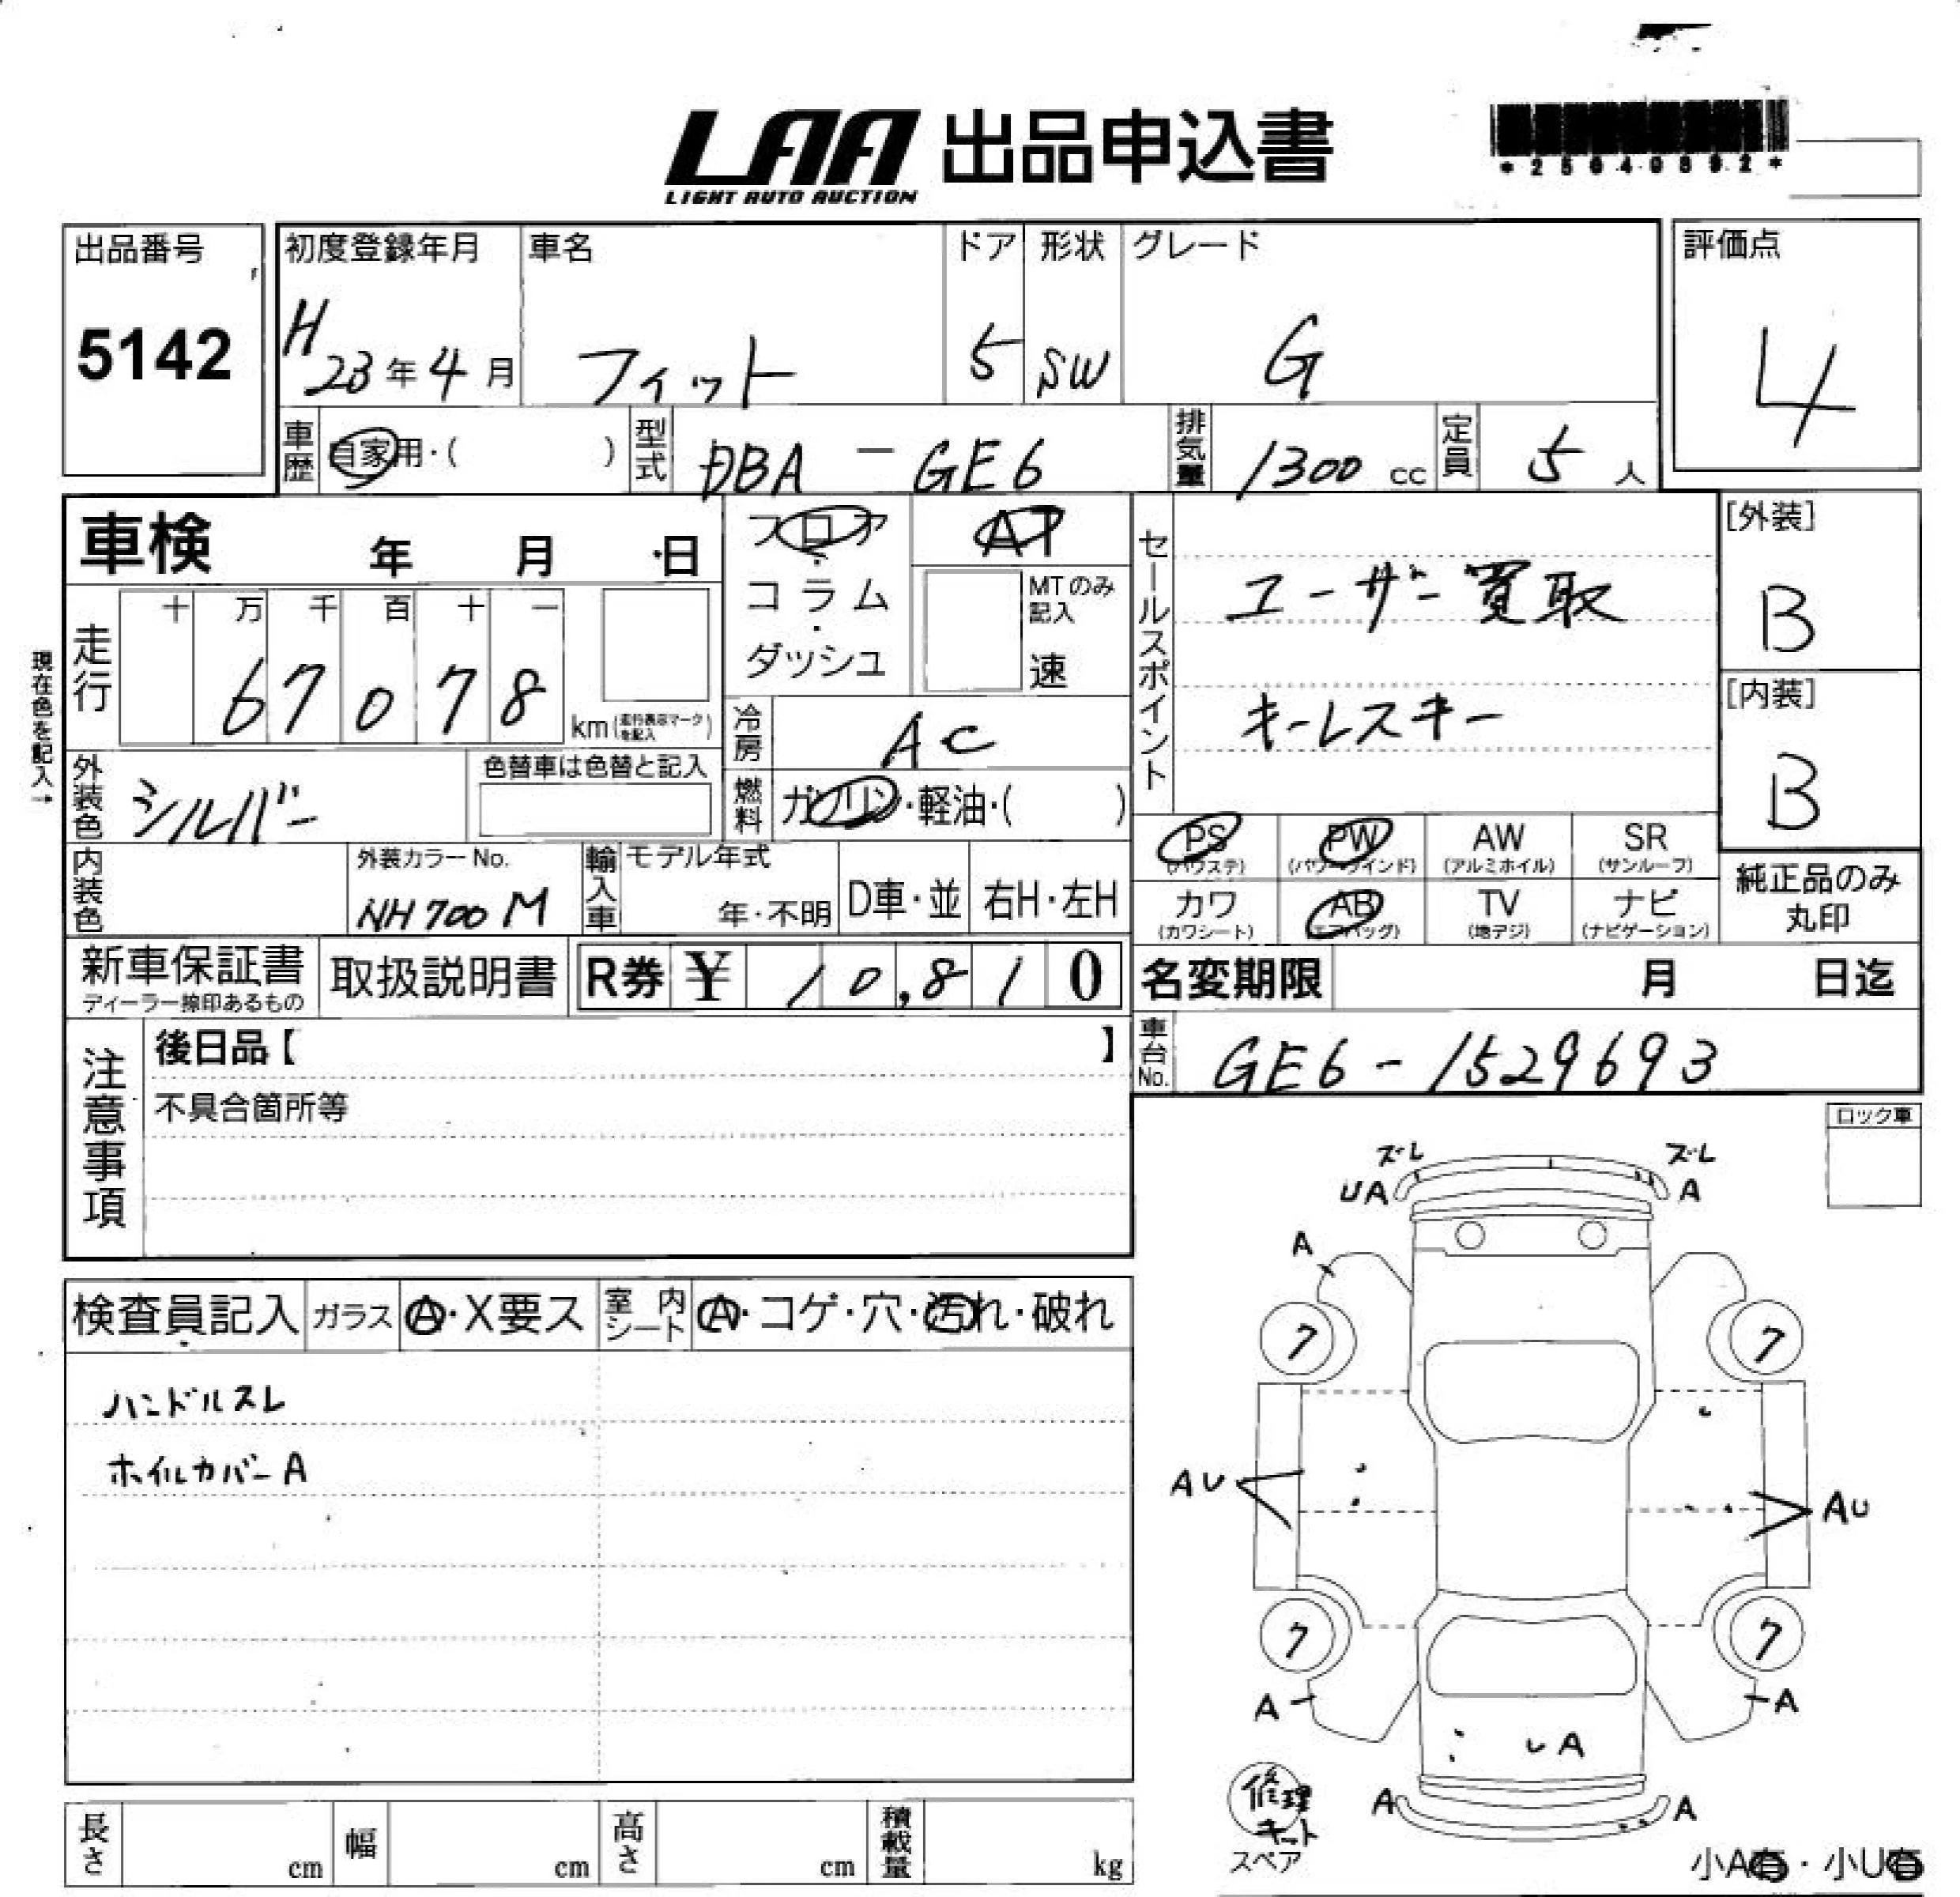 LAA 出品申込書
LIGHT AUTO AUCTION
出品番号
5142
初度登録年月
H23年4月
車名
フィット
ドア
5
形状
SW
グレード
G
評価点
4
車歴 自家用・( )
型式 DBA-GE6
排気量 1300 cc
定員 5 人
車検 年 月 日
フロア・コラム・ダッシュ
AT
MTのみ記入
速
セールスポイント
ユーザー買取
キーレスキー
[外装]
B
[内装]
B
現在色を記入→
走行 十 万 千 百 十 一
67078
km(走行表示マークを記入)
冷房 AC
燃料 ガソリン・軽油・( )
外装色 シルバー
色替車は色替と記入
内装色
外装カラーNo.
NH700M
輸入車 モデル年式
年・不明
D車・並
右H・左H
PS
(パワステ)
PW
(パワーウインド)
AW
(アルミホイル)
SR
(サンルーフ)
カワ
(カワシート)
AB
(エアバッグ)
TV
(地デジ)
ナビ
(ナビゲーション)
純正品のみ
丸印
新車保証書
ディーラー捺印あるもの
取扱説明書
R券 ¥ 10,810
名変期限 月 日迄
車台No. GE6-1529693
注意事項
後日品【 】
不具合箇所等
ロック車
検査員記入 ガラス A・X要ス 室内シート A・コゲ・穴・汚れ・破れ
ハンドルスレ
ホイルカバーA
ズレ ズレ
UA A
A
7 7
AU AU
7 7
A A
UA
A A
修理
キット
スペア
小A有・小U有
長さ cm 幅 cm 高さ cm 積載量 kg